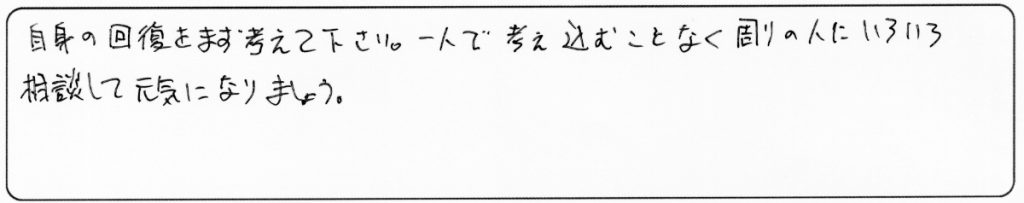 自身の回復をまず考えて下さい。一人で考え込むことなく周りの人にいろいろ
相談して元気になりましょう。